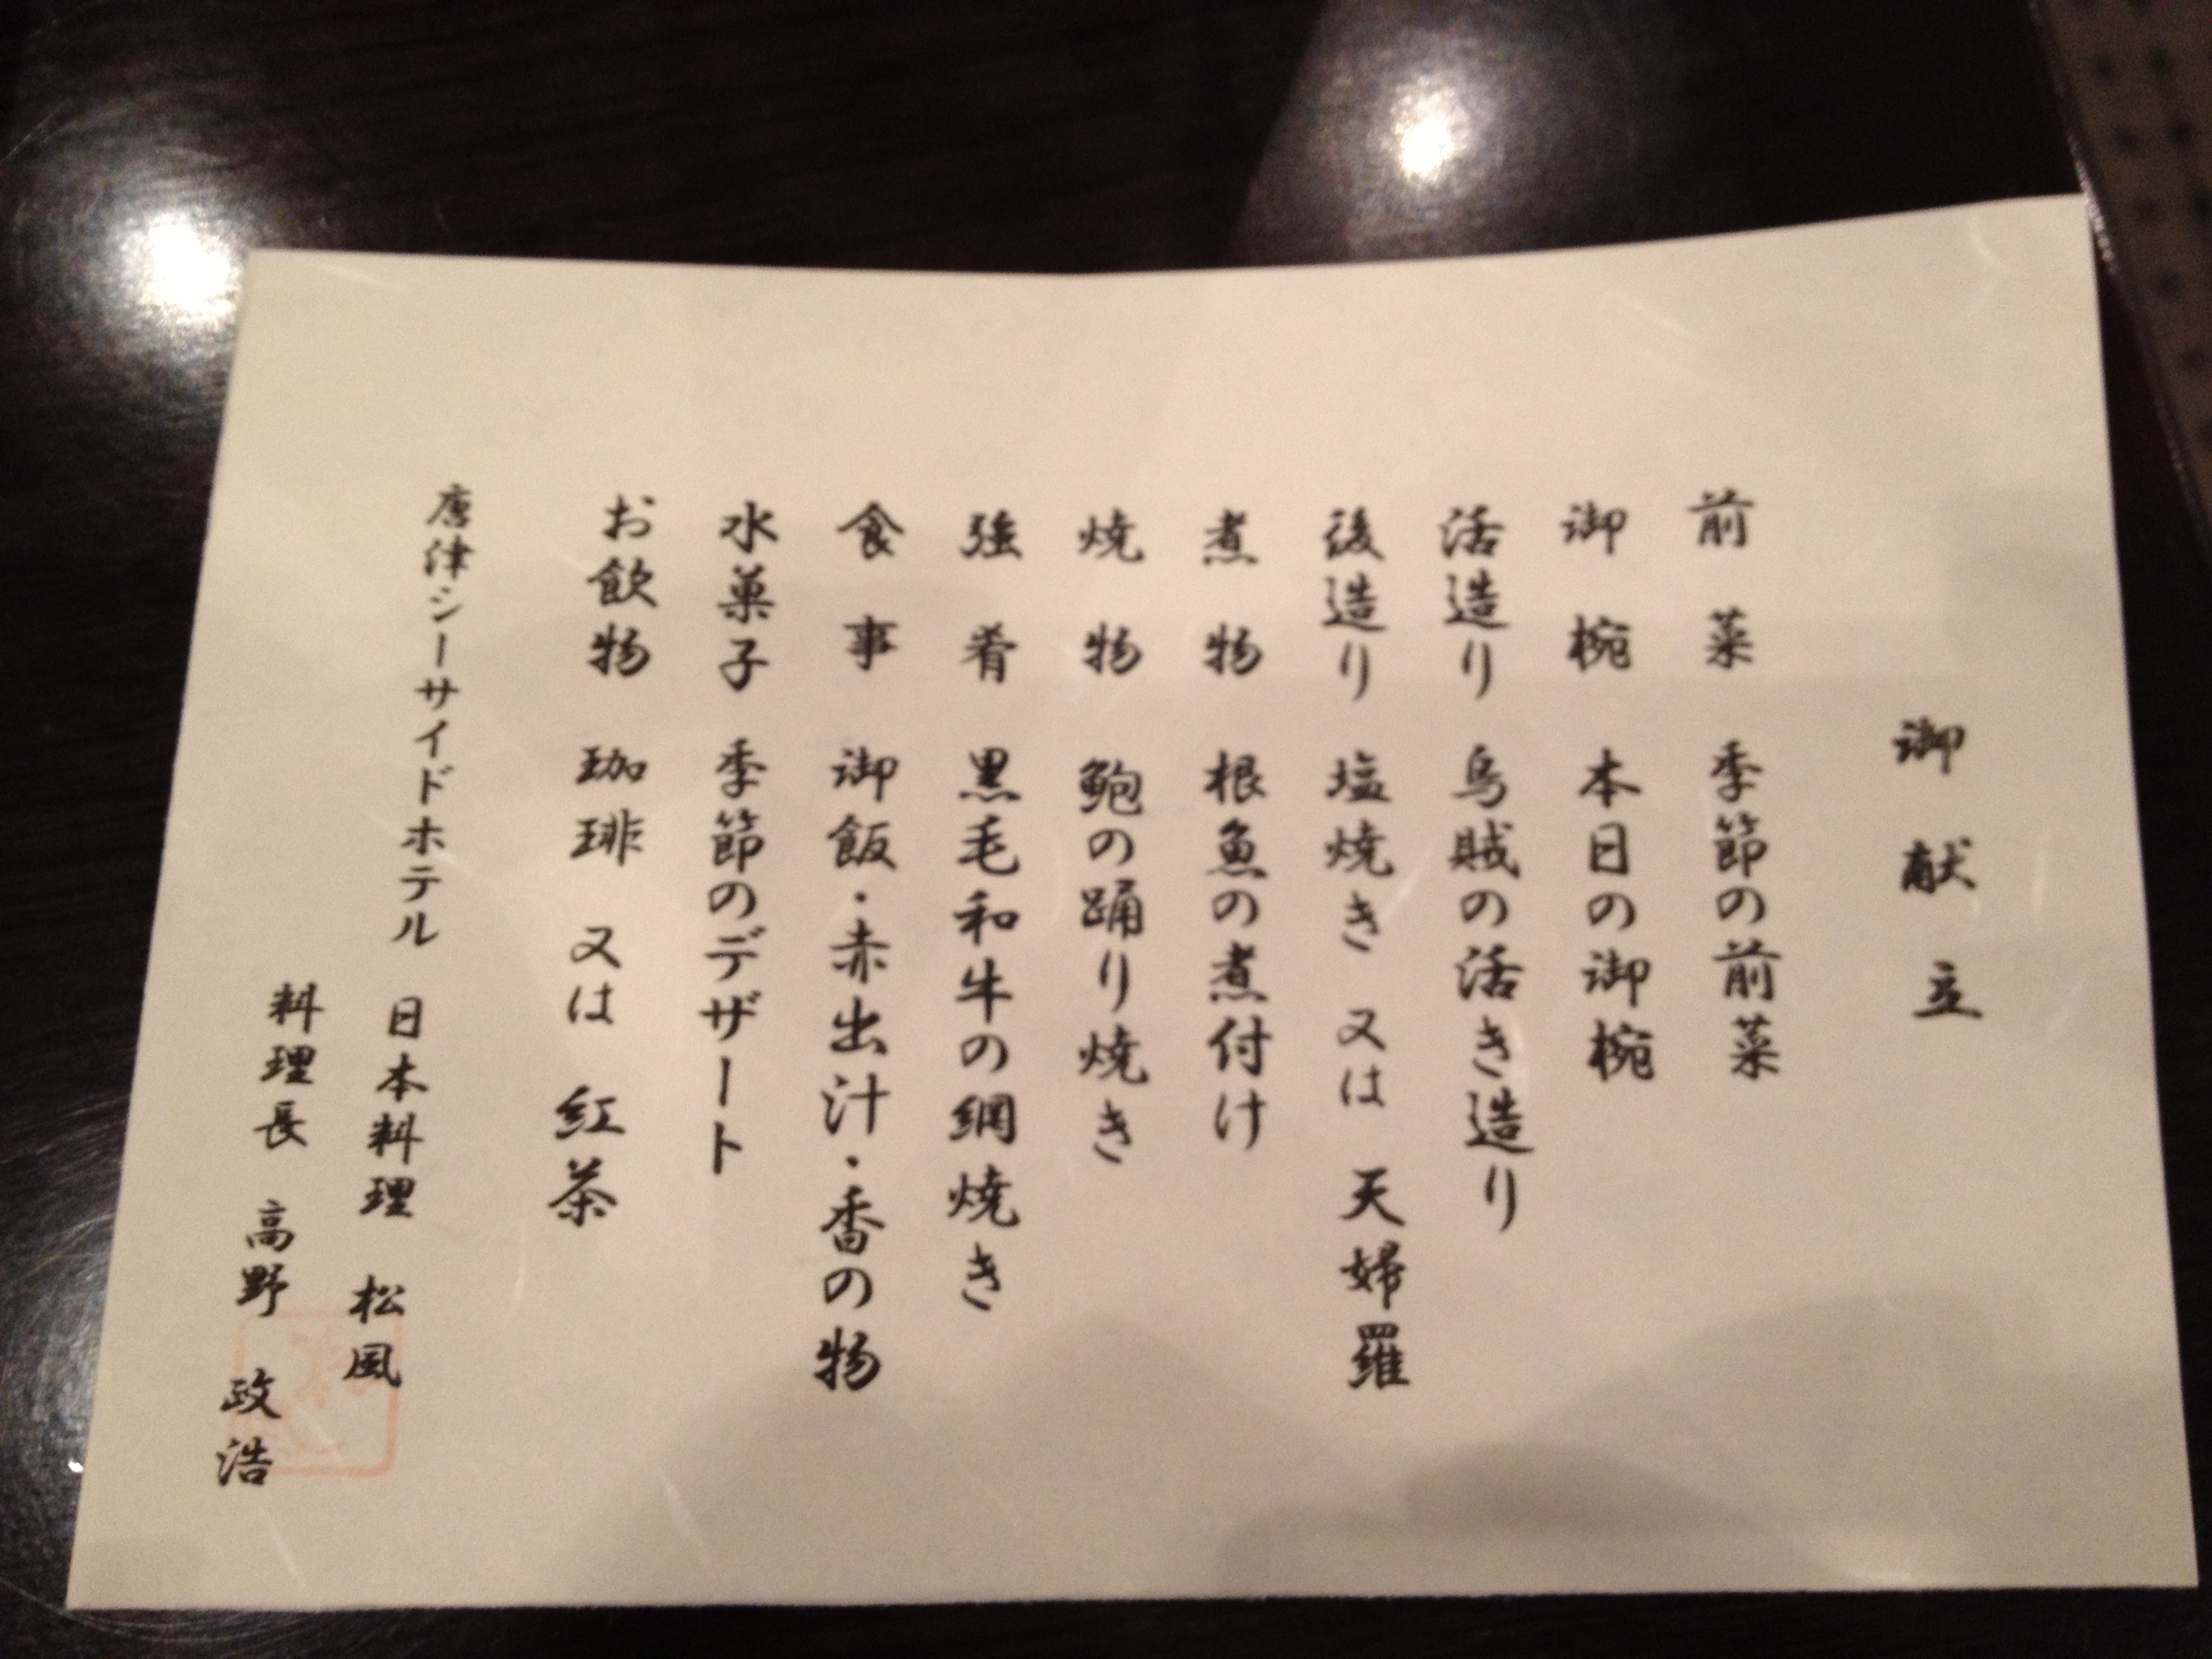 御献立
前菜 季節の前菜
御椀 本日の御椀
活造り 烏賊の活き造り
後造り 塩焼き 又は 天婦羅
煮物 根魚の煮付け
焼物 鮑の踊り焼き
強肴 黒毛和牛の網焼き
食事 御飯・赤出汁・香の物
水菓子 季節のデザート
お飲物 珈琲 又は 紅茶
唐津シーサイドホテル 日本料理 松風
料理長 高野 政浩